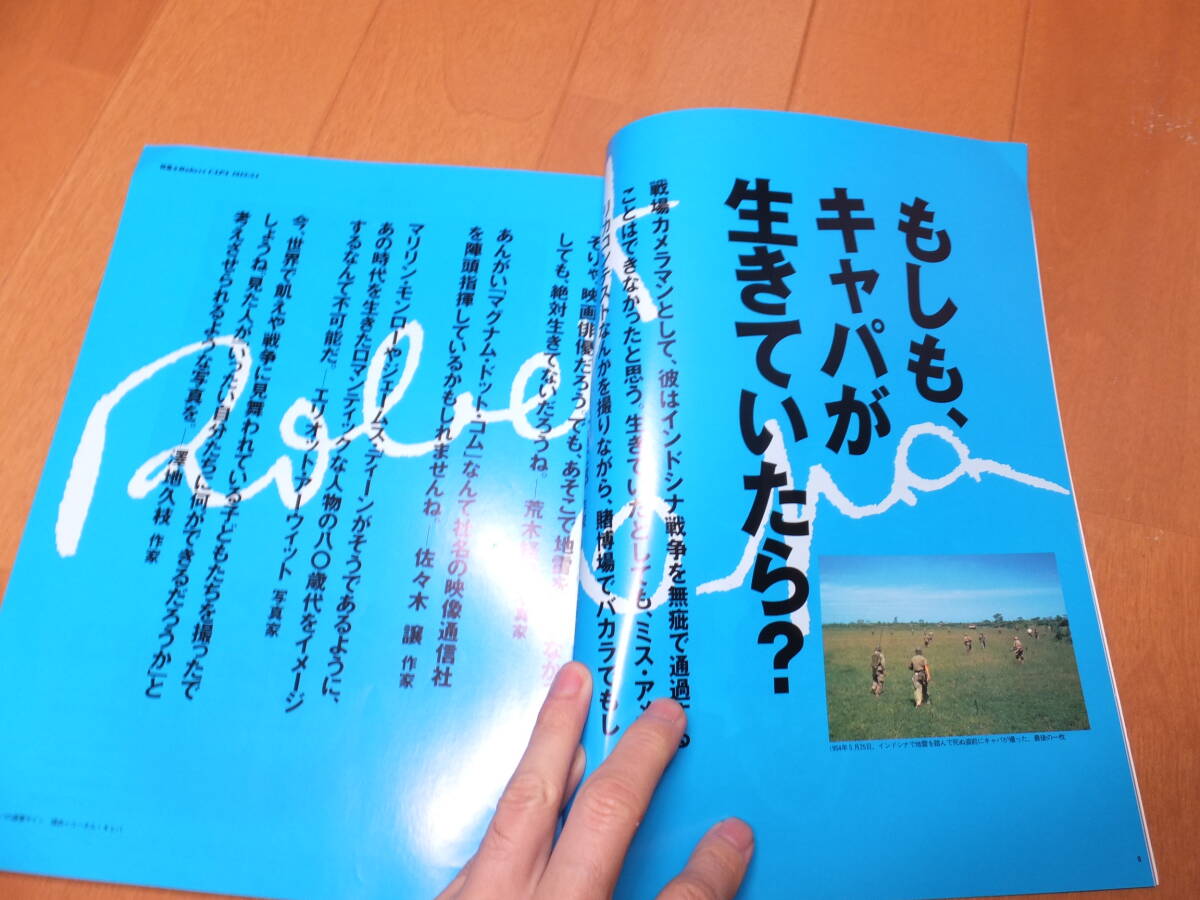 もしも、
キャパが
生きていたら?
戦場カメラマンとして、彼はインドシナ戦争を無疵で通過する
ことはできなかったと思う。生きていたとしても、ミス・アメ
リカコンテストなんかを撮りながら、賭博場でバカラでもし
そりゃ、映画俳優だろう。でも、あそこで地雷を
しても、絶対生きてないだろうね。—荒木
あんがい「マグナム・ドット・コム」なんて社名の映像通信社
を陣頭指揮しているかもしれませんね。—佐々木 譲 作家
マリリン・モンローやジェームス・ディーンがそうであるように、
あの時代を生きたロマンティックな人物の八〇歳代をイメージ
するなんて不可能だ。—エリオット・アーウィット 写真家
今、世界で飢えや戦争に見舞われている子どもたちを撮ったで
しょうね。見た人が、「いったい自分たちに何ができるだろうか」と
考えさせられるような写真を。—澤地久枝 作家
Robert Capa
1954年5月25日、インドシナで地雷を踏んで死ぬ直前にキャパが撮った、最後の一枚